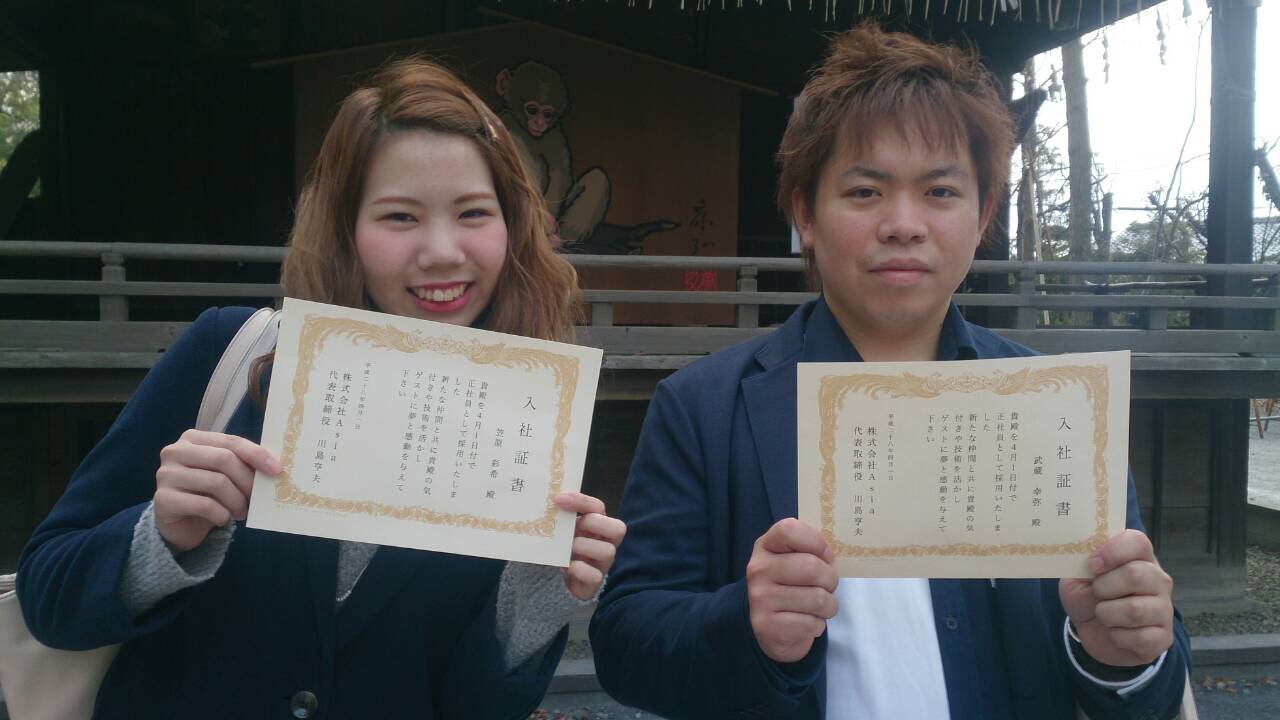 入社証書
笠原 彩希 殿
貴殿を4月1日付で
正社員として採用いたしま
した
新たな仲間と共に貴殿の気
付きや技術を活かし
ゲストに夢と感動を与えて
下さい
平成二十八年四月一日
株式会社Asia
代表取締役 川島亨夫
入社証書
武蔵 幸弥 殿
貴殿を4月1日付で
正社員として採用いたしま
した
新たな仲間と共に貴殿の気
付きや技術を活かし
ゲストに夢と感動を与えて
下さい
平成二十八年四月一日
株式会社Asia
代表取締役 川島亨夫